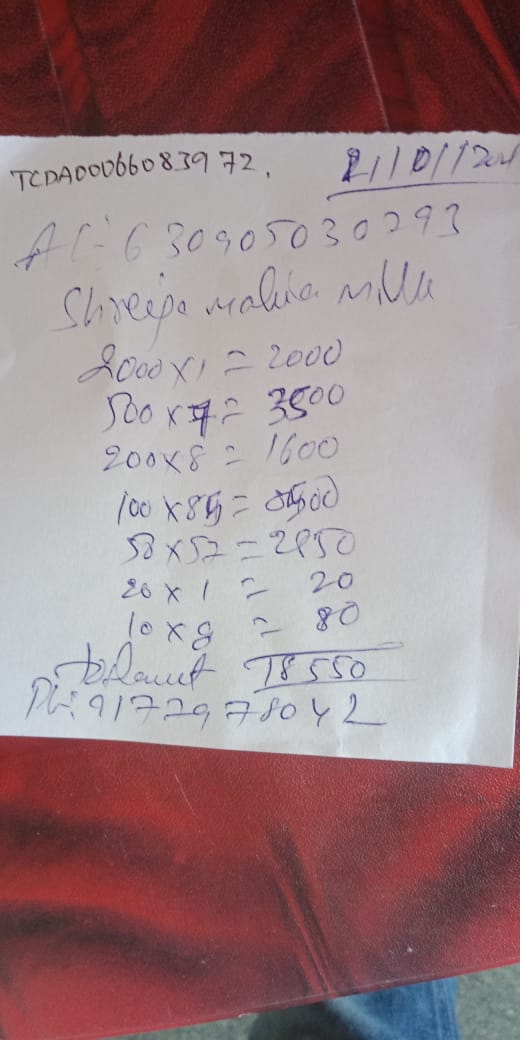 TCDA00066083972.
21/01/202
A/C:- 630905030293
Shreepa malia milla
2000 x 1 = 2000
500 x 7 = 3500
200 x 8 = 1600
100 x 85 = 8500
50 x 57 = 2850
20 x 1 = 20
10 x 8 = 80
18550
Ph: 91772978042